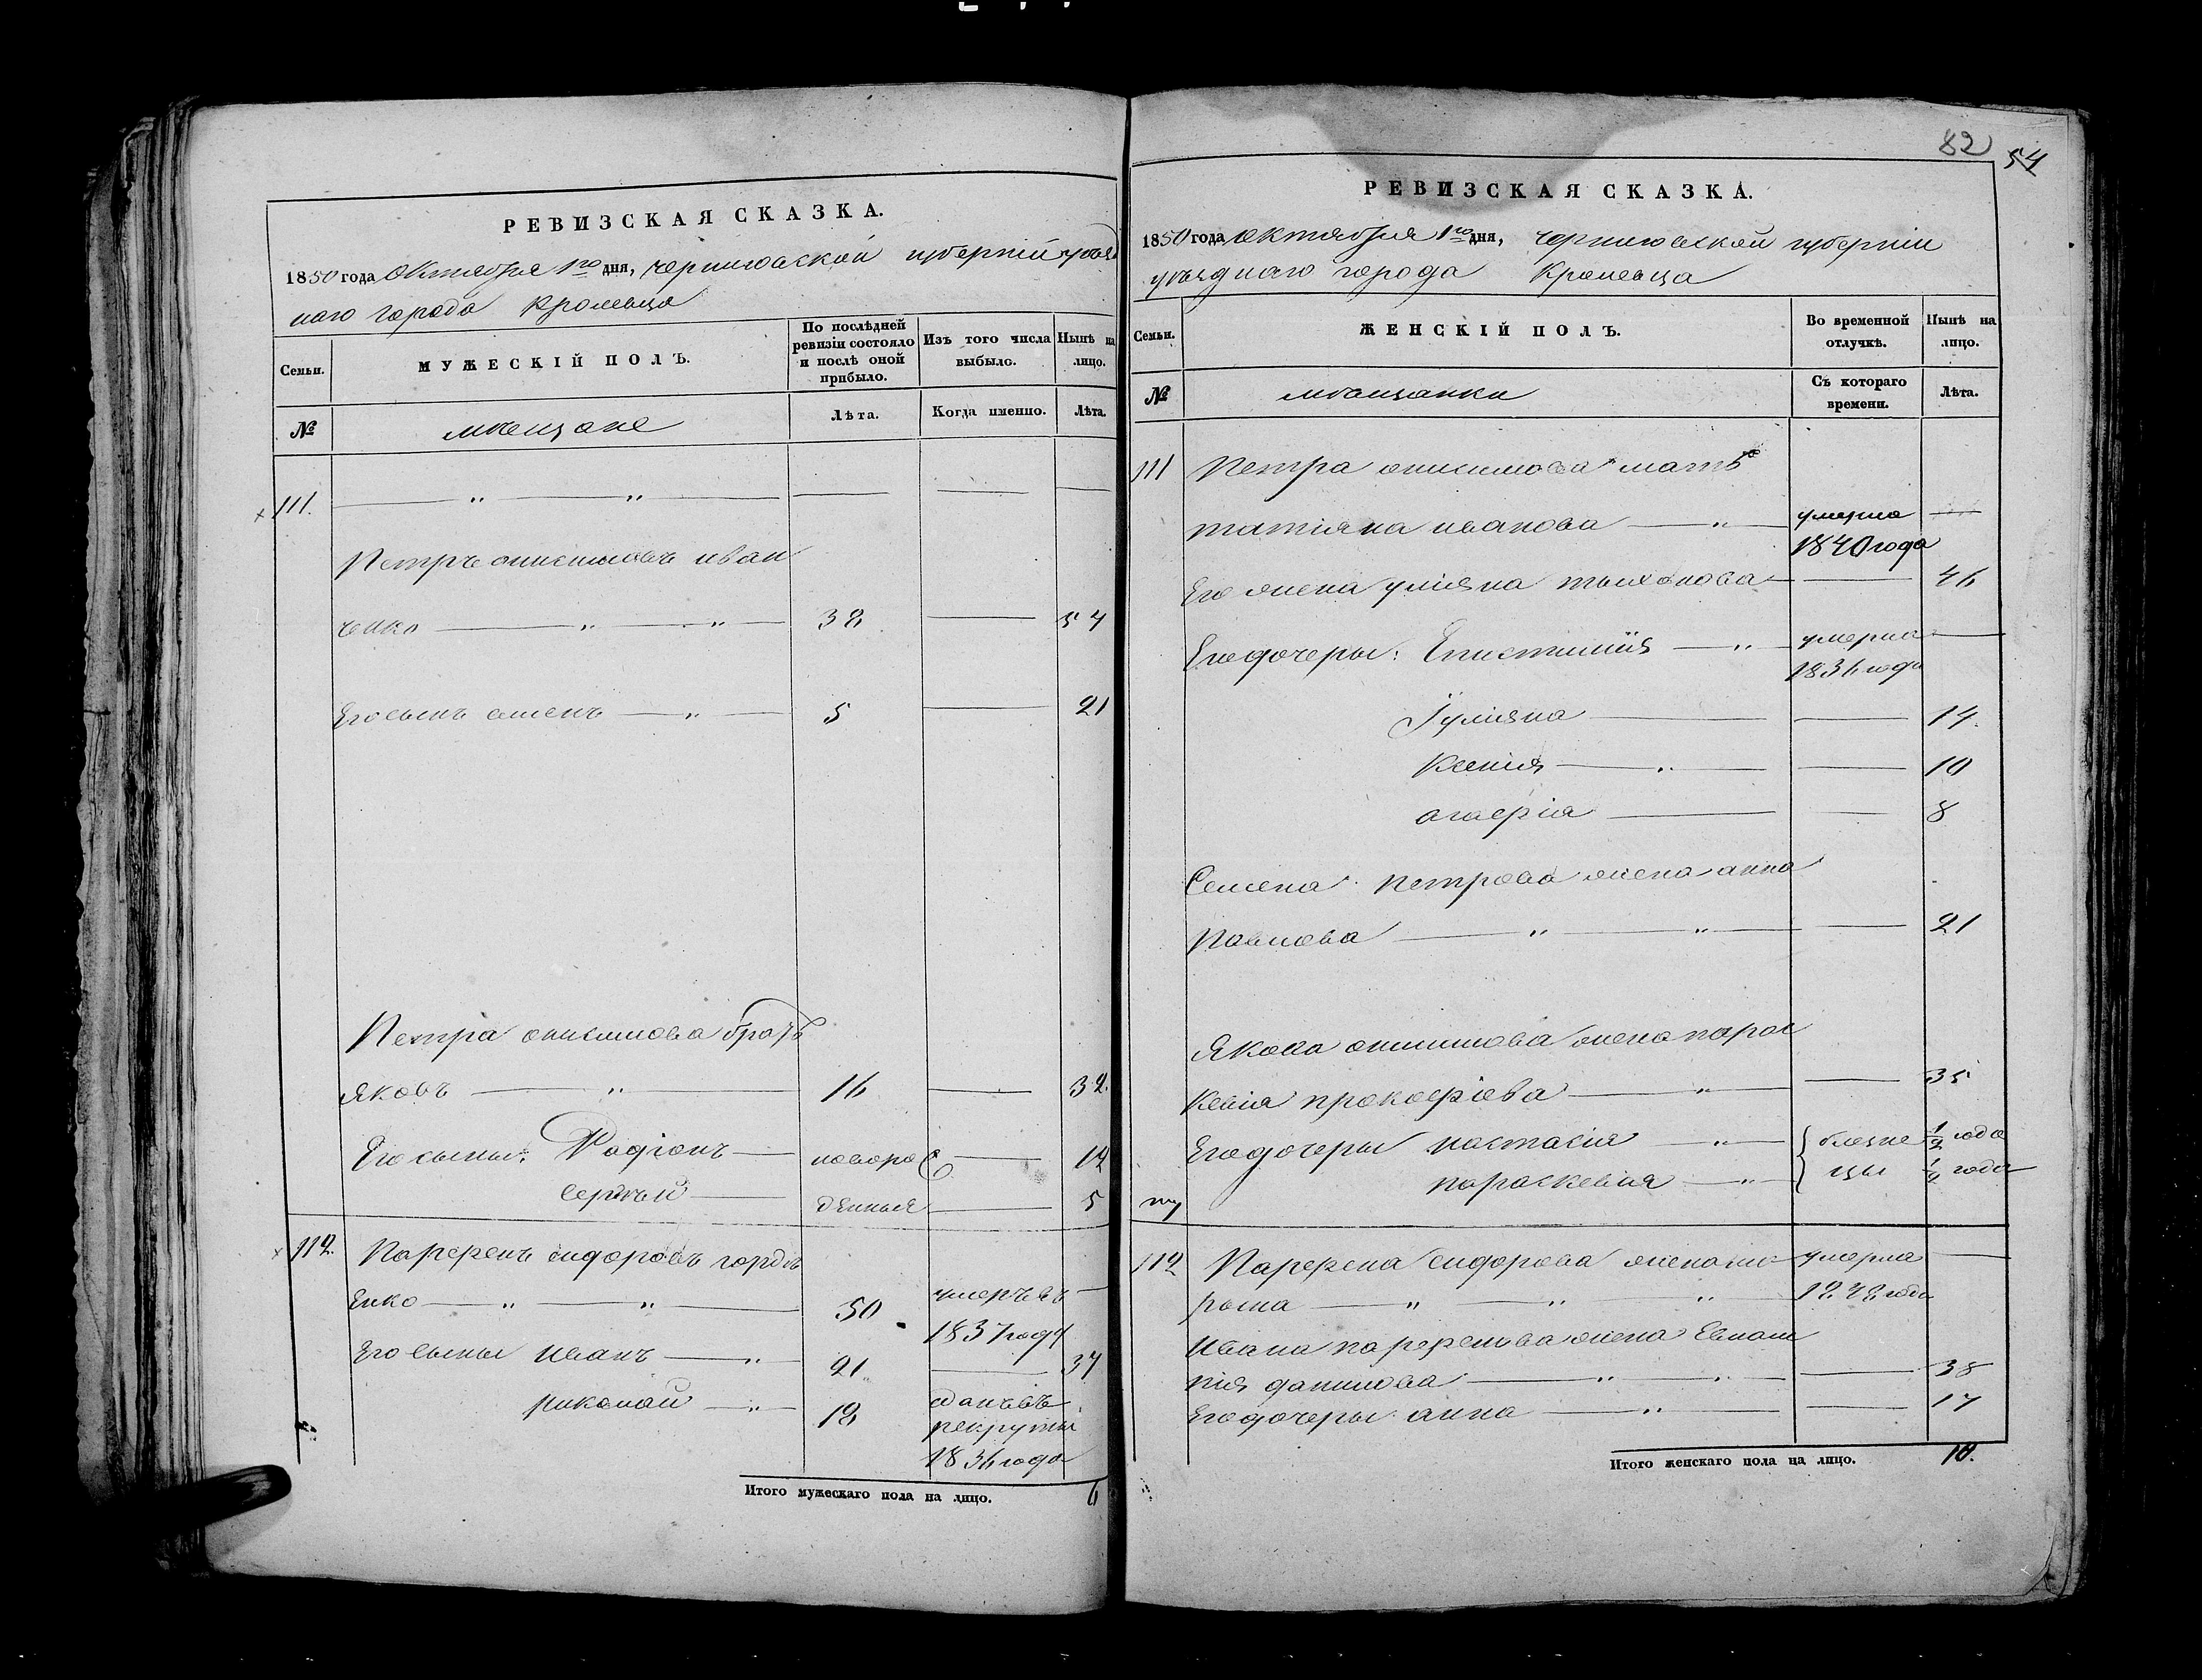 РЕВИЗСКАЯ СКАЗКА.
1850 года Октября 1го дня, черниговской губерніи уѣзд
наго города Кролевца
Семьи.
МУЖЕСКІЙ ПОЛЪ.
По послѣдней ревизіи состояло и послѣ оной прибыло.
Изъ того числа выбыло.
Нынѣ на лицо.
№
мѣщане
Лѣта.
Когда именно.
Лѣта.
111.
Петръ онисимовъ иван
ченко 38 54
Его сынъ семенъ 5 21
Петра онисимова братъ
яковъ 16 32.
Его сыны: Родіонъ новоро 12
сергѣй жденныя 5
112. Парфенъ сидоровъ горди
енко 50 умеръ въ
1837 году
Его сыны Иванъ 21 37
николай 18 сданъ въ
рекруты
1836 года
Итого мужескаго пола на лицо. 6
82
54
РЕВИЗСКАЯ СКАЗКА.
1850 года октября 1го дня, черниговской губерніи
уѣзднаго города Кролевца
Семьи.
ЖЕНСКІЙ ПОЛЪ.
Во временной отлучкѣ.
Нынѣ на лицо.
№
мѣщанки
Съ котораго времени.
Лѣта.
111 Петра онисимова мать
татіяна иванова умерла
1840 года
Его жена уліяна тыхонова 46
Его дочеры: Епистиміия умерла
1836 года
Іуліяна 14.
Ксенія 10
агафія 8
Семена петрова жена анна
Павлова 21
Якова онисимова жена парас
кевія прокофіева 35
Его дочеры настасія близне 1/2 года
параскевия цы 1/2 года
112 Парфена сидорова жена ма умерла
рына 1848 года
Ивана парфенова жена Евлам
пія данилова 38
Его дочеры анна 17
Итого женскаго пола на лицо. 10.